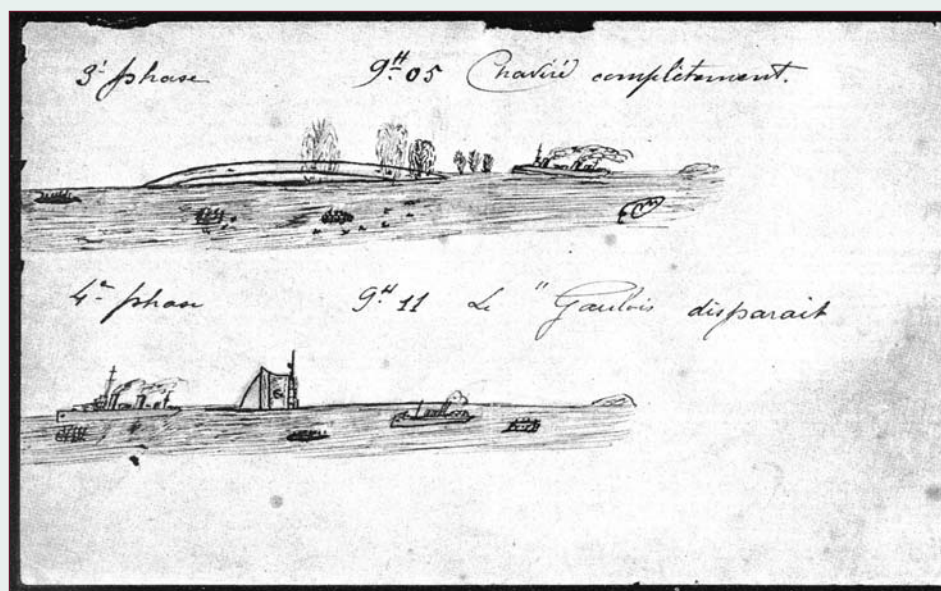 3e phase 9H 05 Chaviré complètement.
4e phase 9H 11 Le "Gaulois disparait